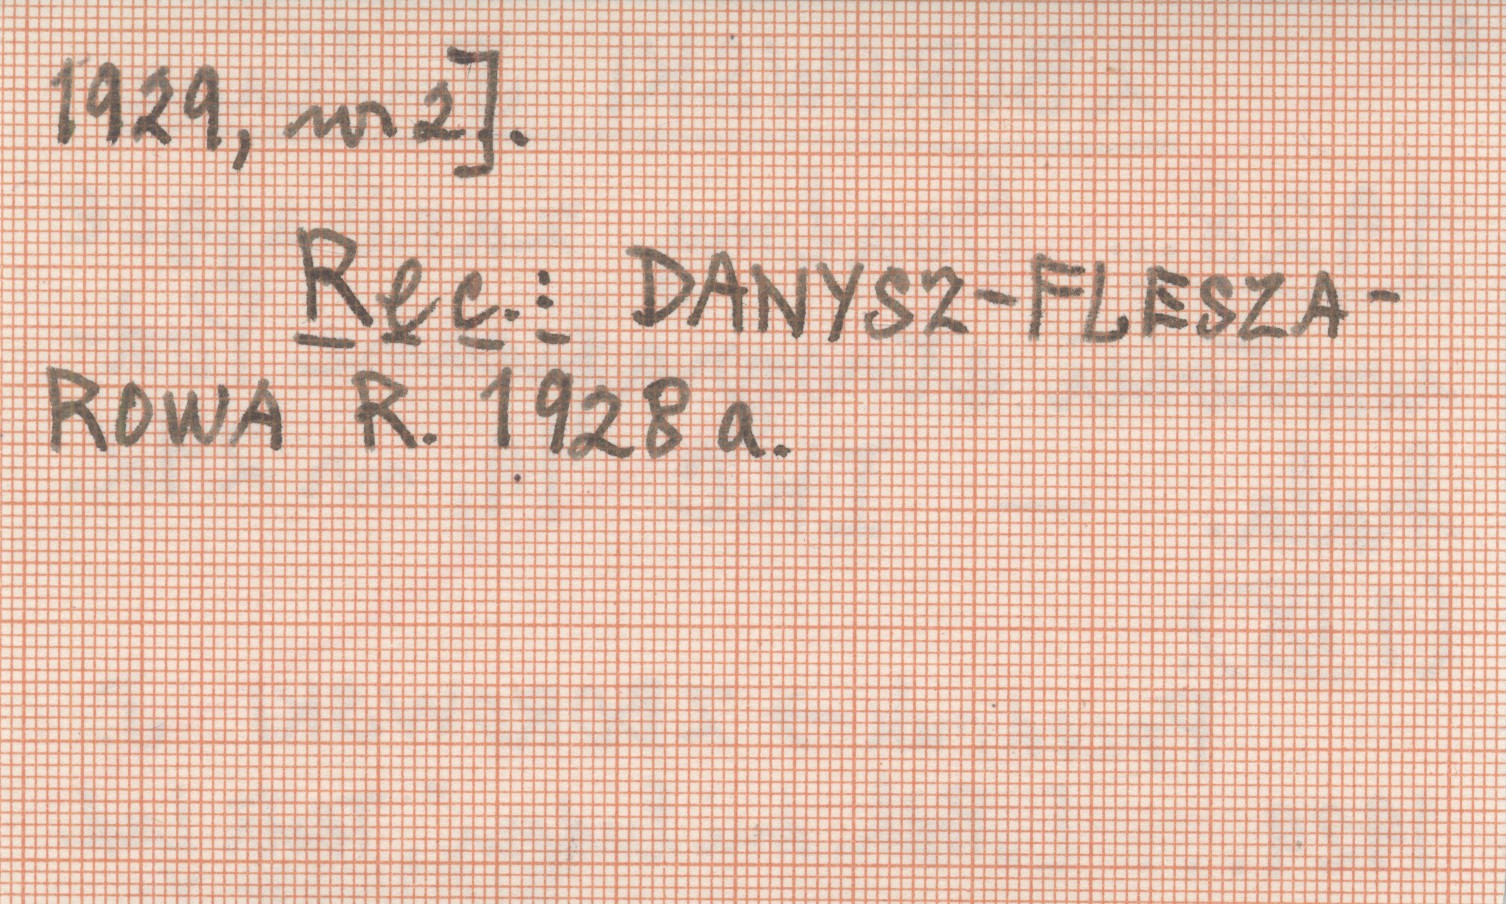 1929, nr 2].
Rec.: DANYSZ-FLESZA-
ROWA R. 1928 a.